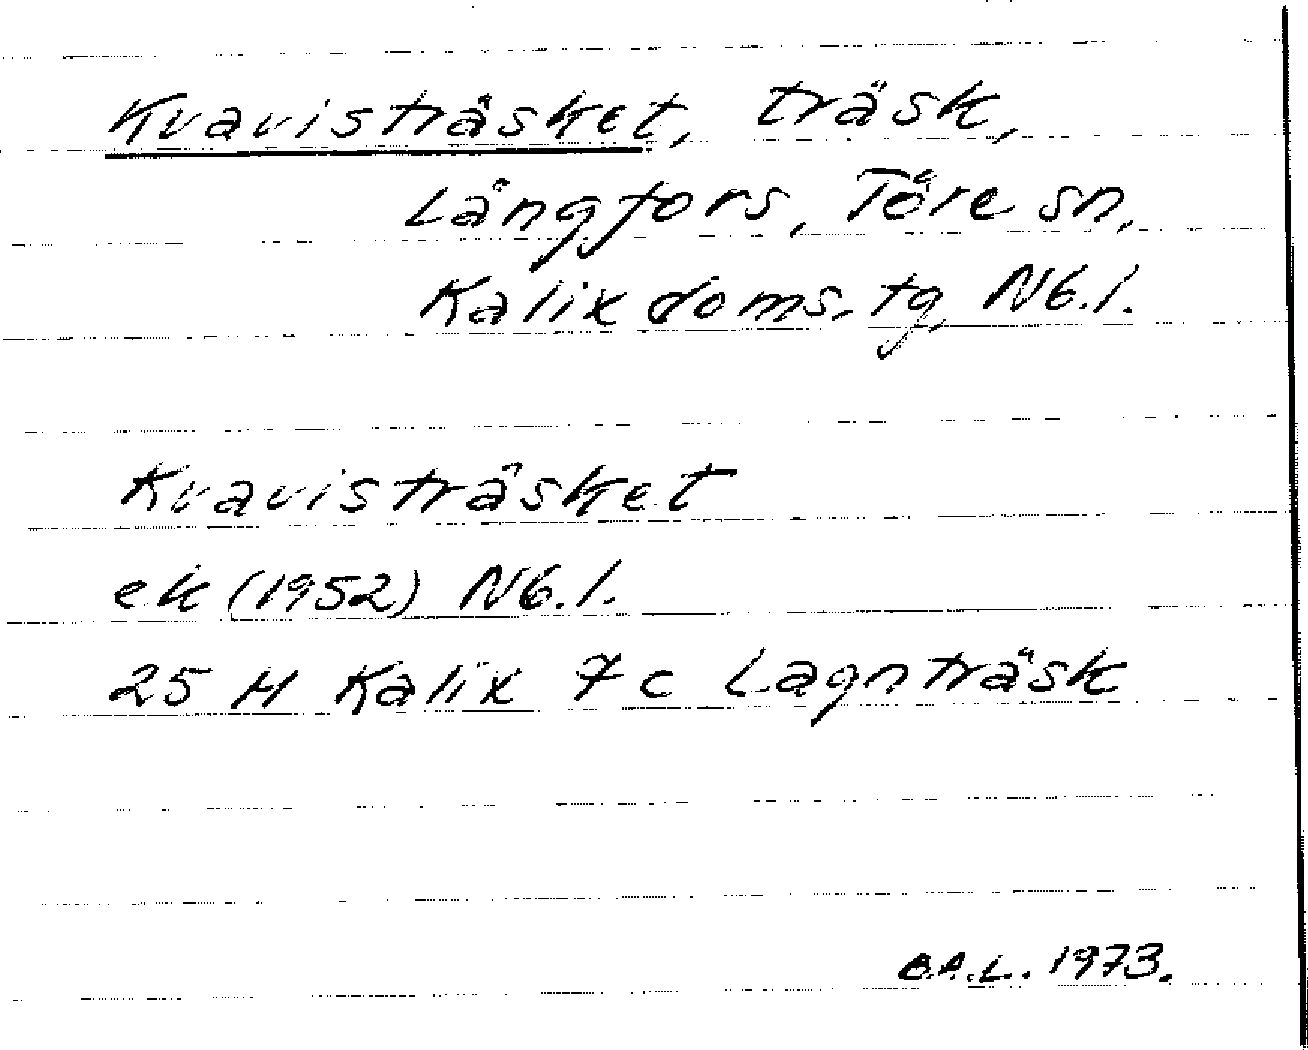 Kvavisträsket, träsk,
Långfors, Töre sn,
Kalix doms. tg, Nb. l.
Kvavisträsket
ek (1952) Nb. l.
25 M Kalix 7c Lagnträsk
B.A.L. 1973.